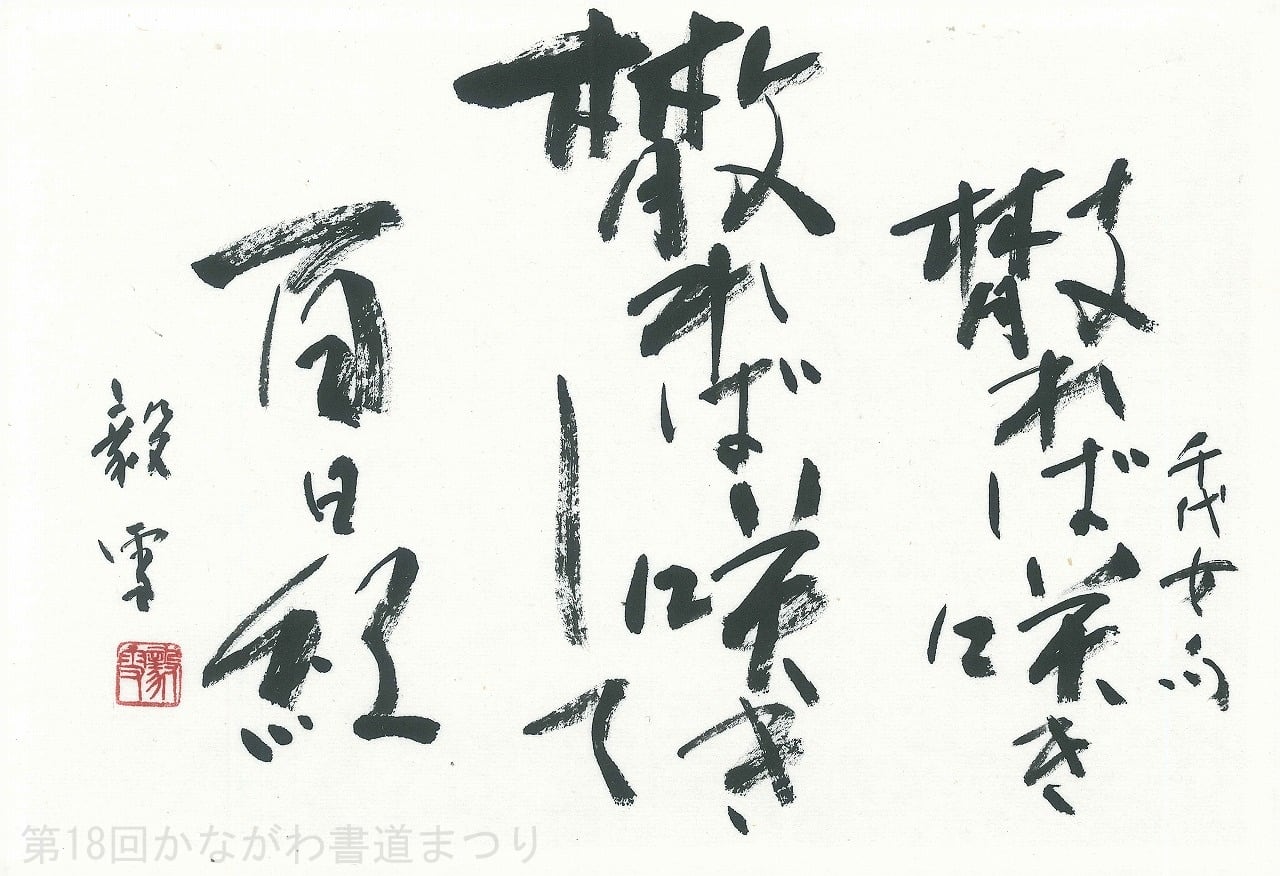 千代女句
散れば咲き
散れば咲き
して
百日紅
毅雪
毅雪
第18回かながわ書道まつり